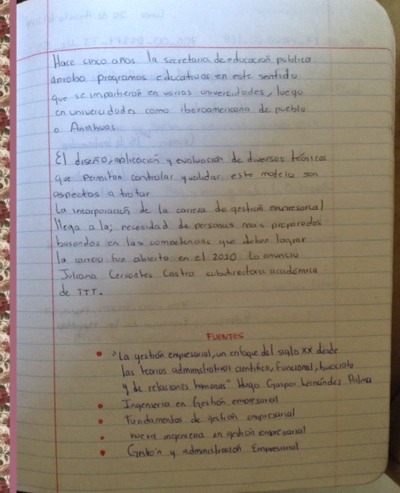 Hace cinco años la secretaria de educación publica
aprobo programas educativos en este sentido
que se impartieron en varias univercidades, luego
en univercidades como iberoamericana de puebla
o Anahuac
El diseño, aplicación y evaluación de diversos técnicas
que permitan controlar y validar este modelo son
aspectos a tratar
La incorporación de la carrera de gestión empresarial
llega a la; necesidad de personas mas preparadas
basandos en las competencias que deben lograr
la carrera fue abierta en el 2010 lo anuncio
Juliana Cervantes Castro subdirectora académica
de ITT.
FUENTES
• "La gestión empresarial, un enfoque del siglo XX desde
las teorias administrativas cientifica, Funcional, burocrata
y de relaciones humanas" Hugo Gaspar Hernández Palma
• Ingenieria en Gestión empresarial
• Fundamentos de gestión empresarial
• nueva ingenieria en gestión empresarial
• Gestión y administración Empresarial